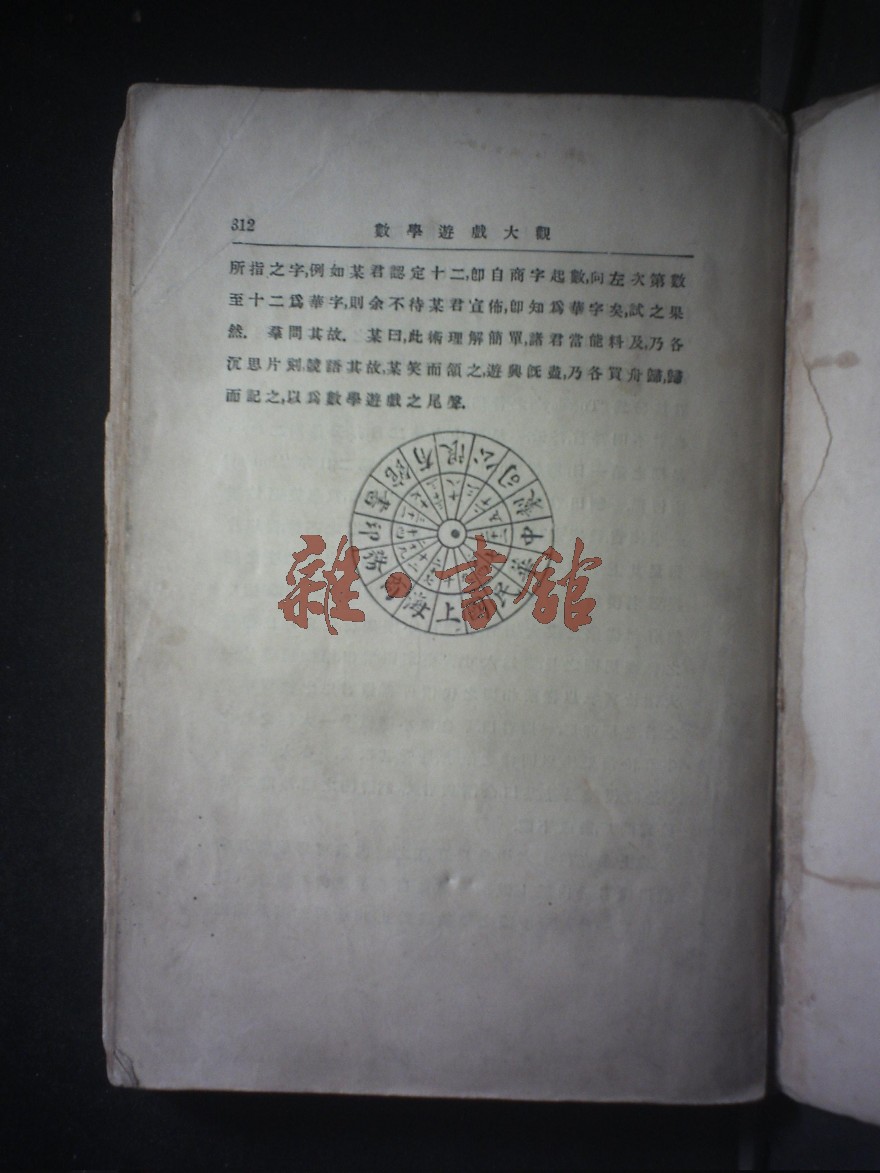 312
數學遊戲大觀
所指之字,例如某君認定十二,卽自商字起數,向左次第數
至十二爲華字,則余不待某君宣佈,卽知爲華字矣,試之果
然. 羣問其故. 某曰,此術理解簡單,諸君當能料及,乃各
沉思片刻,競語其故,某笑而頷之,遊興旣盡,乃各買舟歸,歸
而記之,以爲數學遊戲之尾聲.
有限公司製中
館書印
海上
雜·書館